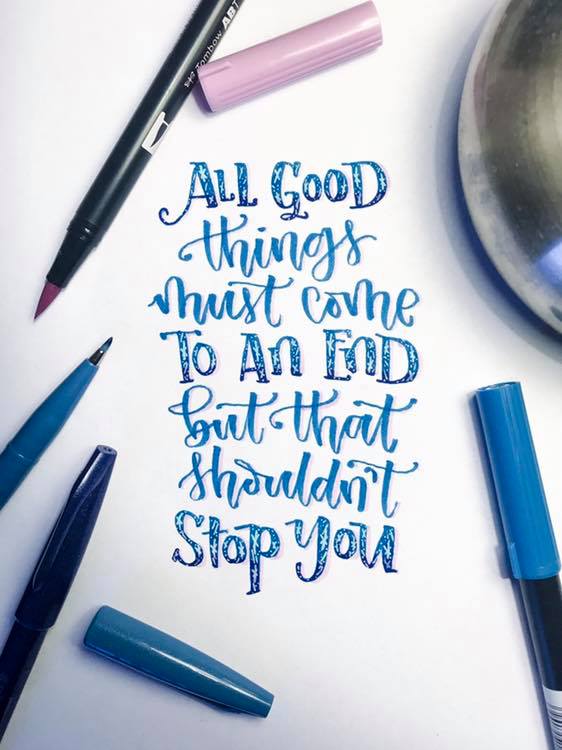 Tombow ABT
ALL GOOD
things
must come
To An END
but that
shouldn't
Stop You